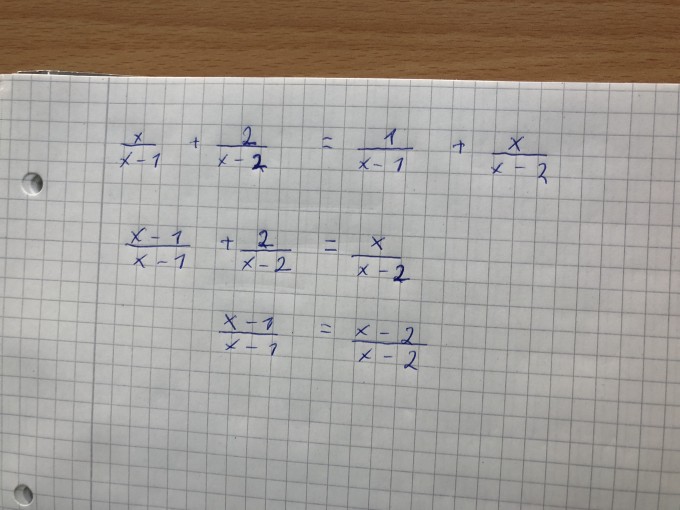 x/(x-1) + 2/(x-2) = 1/(x-1) + x/(x-2)
(x-1)/(x-1) + 2/(x-2) = x/(x-2)
(x-1)/(x-1) = (x-2)/(x-2)